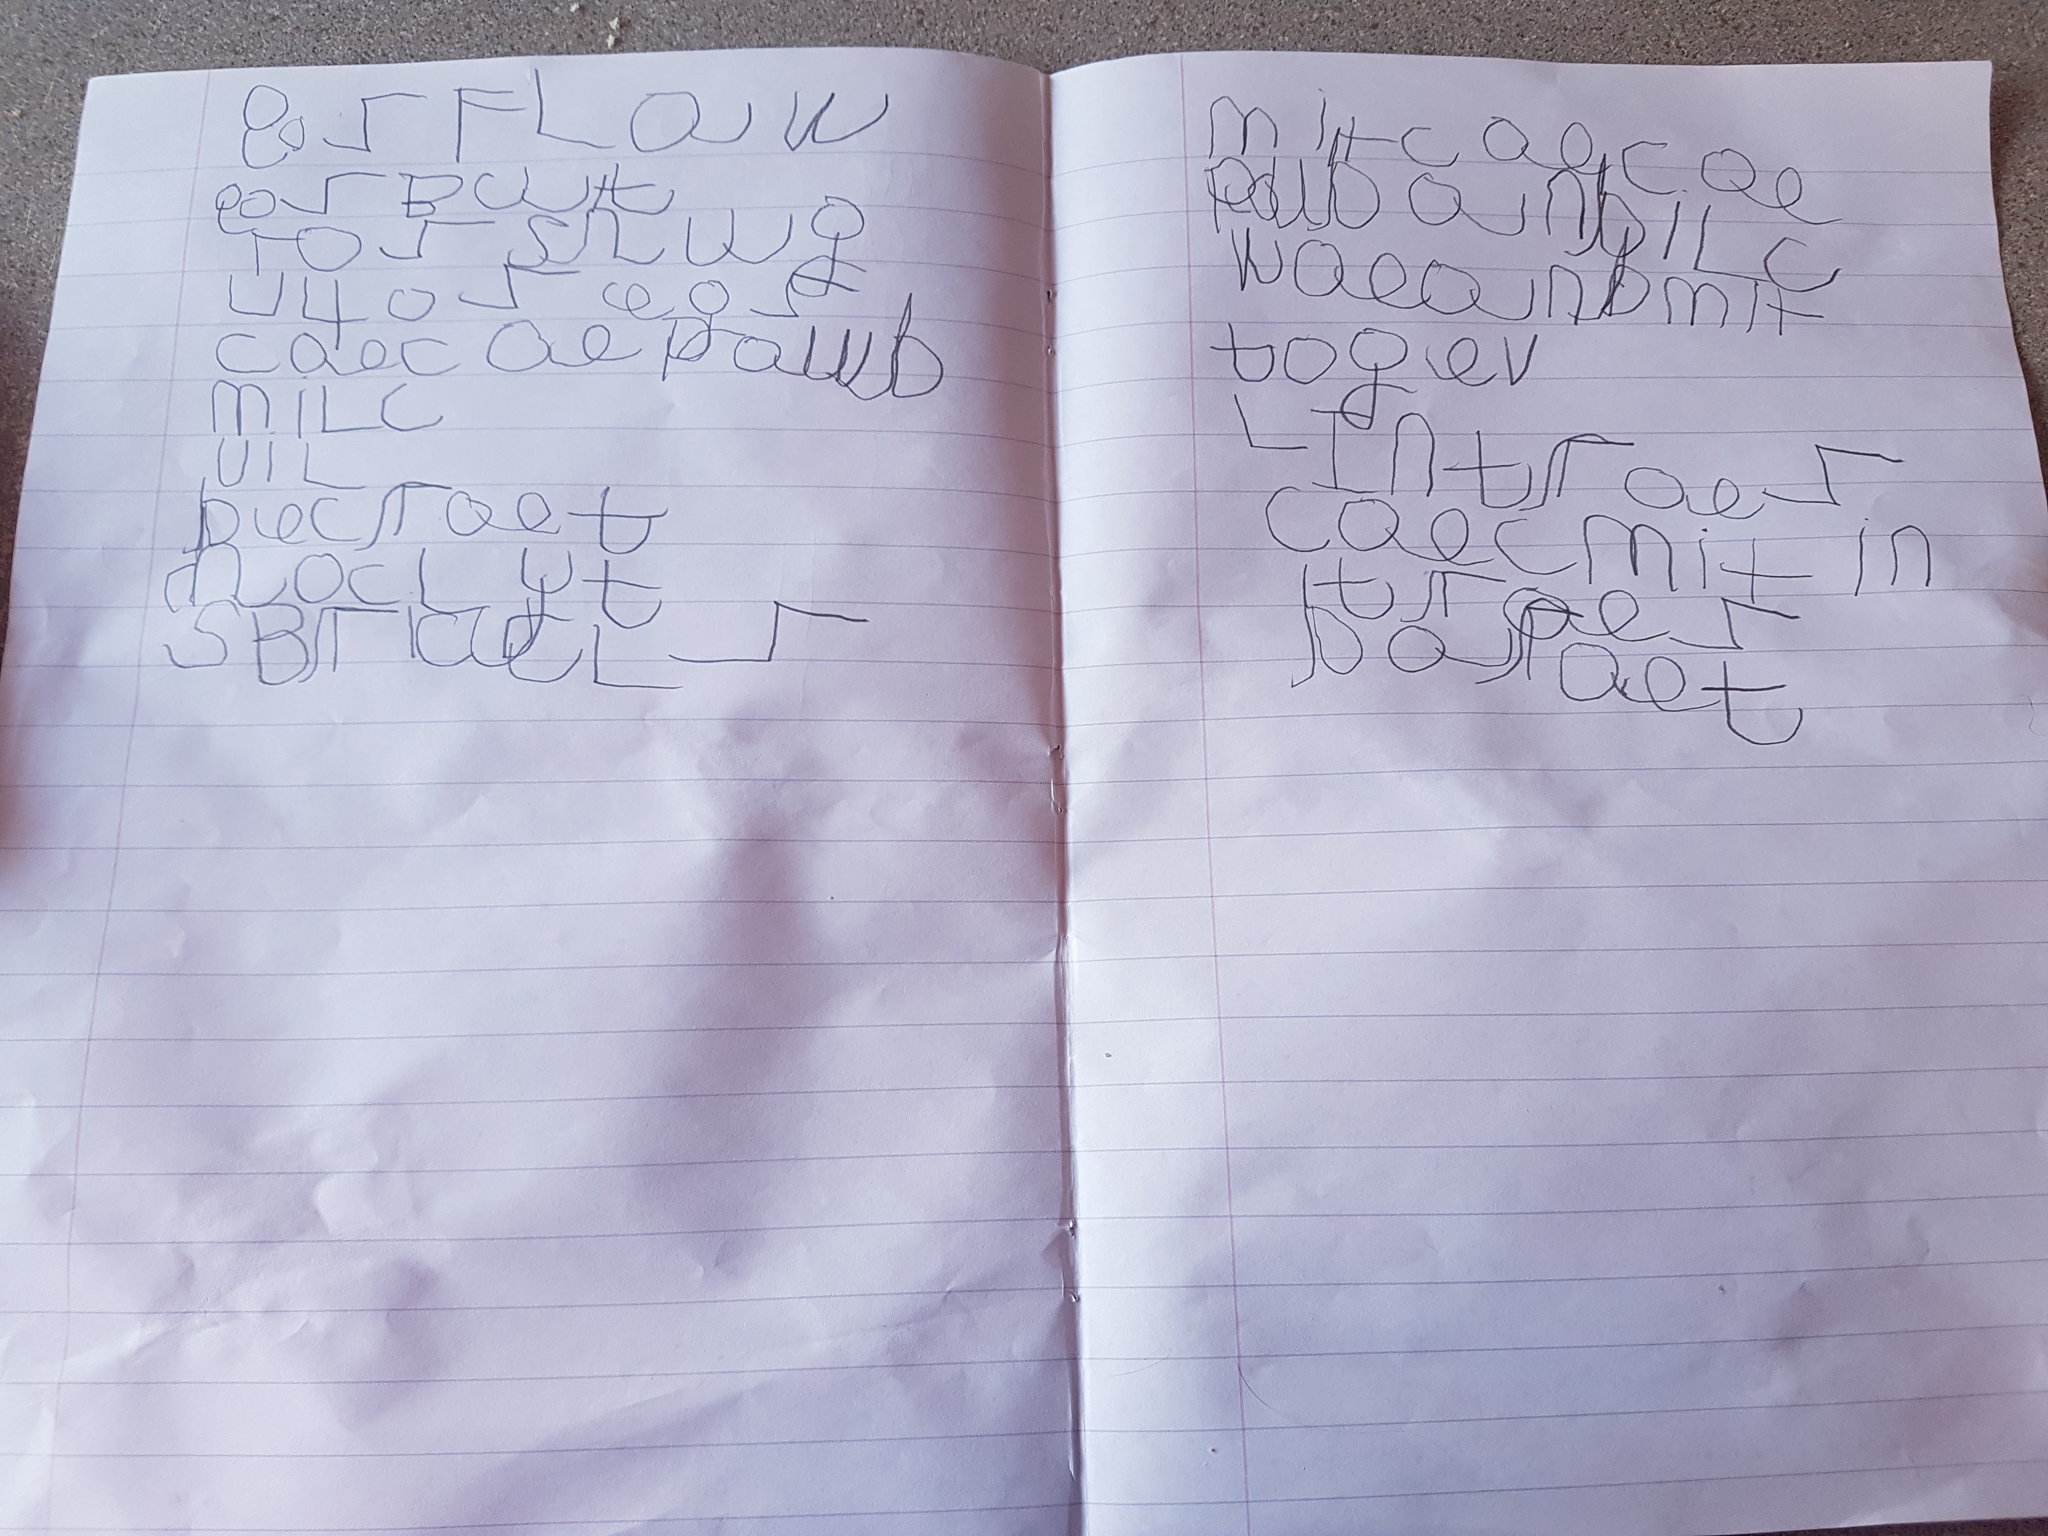 8or FLaw
8or But
ror Shug
u4or egr
caecae pawb
miLc
uiL
becraet
choclut
SBricucLr
mit caecae
pawb aunb iLc
waeaunbmit
togev
Lintraer
caecmit in
traer
baraet